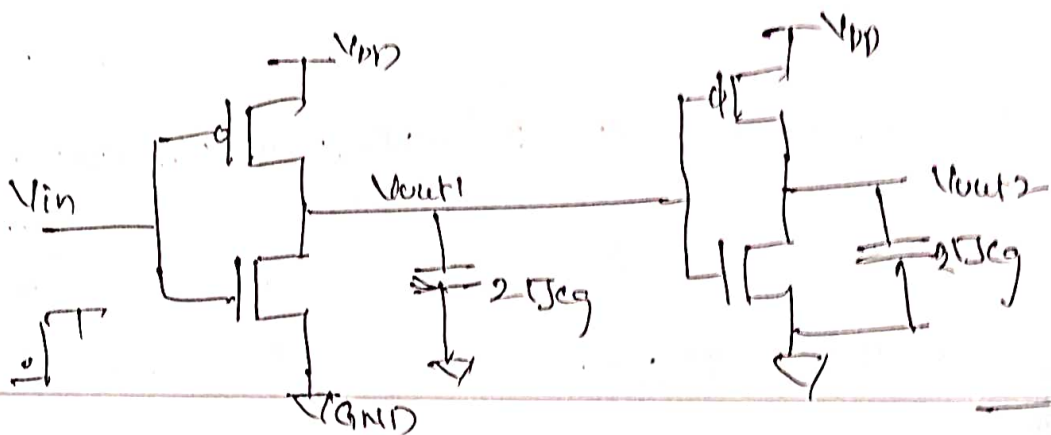 VDD
VDD
Vin
Vout1
Vout2
2□cg
2□cg
GND